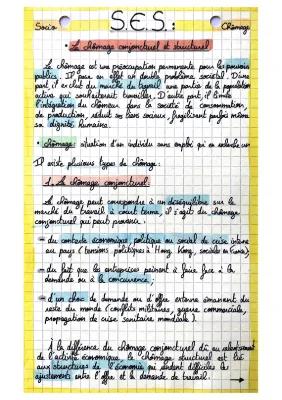 Socio
S.E.S :
Chômage
• Le chômage conjoncturel et structurel
Le chômage est une préoccupation permanente pour les pouvoirs
publics. Il pose en effet un double problème sociétal. D'une
part, il exclut du marché du travail une partie de la population
active qui souhaiterait travailler. D'autre part, il limite
l'intégration du chômeur dans la société de consommation,
de production, réduit ses liens sociaux, fragilisant parfois même
sa dignité humaine.
• chômage : situation d'un individu sans emploi qui en recherche un
Il existe plusieurs types de chômage :
1. Le chômage conjoncturel :
Le chômage peut correspondre à un déséquilibre sur le
marché du travail à court terme, il s'agit du chômage
conjoncturel qui peut provenir :
- du contexte économique, politique ou social de crise interne
au pays (tensions politiques à Hong Kong, sociales en France)
- du fait que les entreprises peinent à faire face à la
demande ou à la concurrence,
- d'un choc de demande ou d'offre externe émanant du
reste du monde (conflits militaires, guerre commerciale,
propagation de crise sanitaire mondiale).
À la différence du chômage conjoncturel dû au ralentissement
de l'activité économique, le chômage structurel est lié
aux structures de l'économie qui rendent difficiles les
ajustements entre l'offre et la demande de travail.